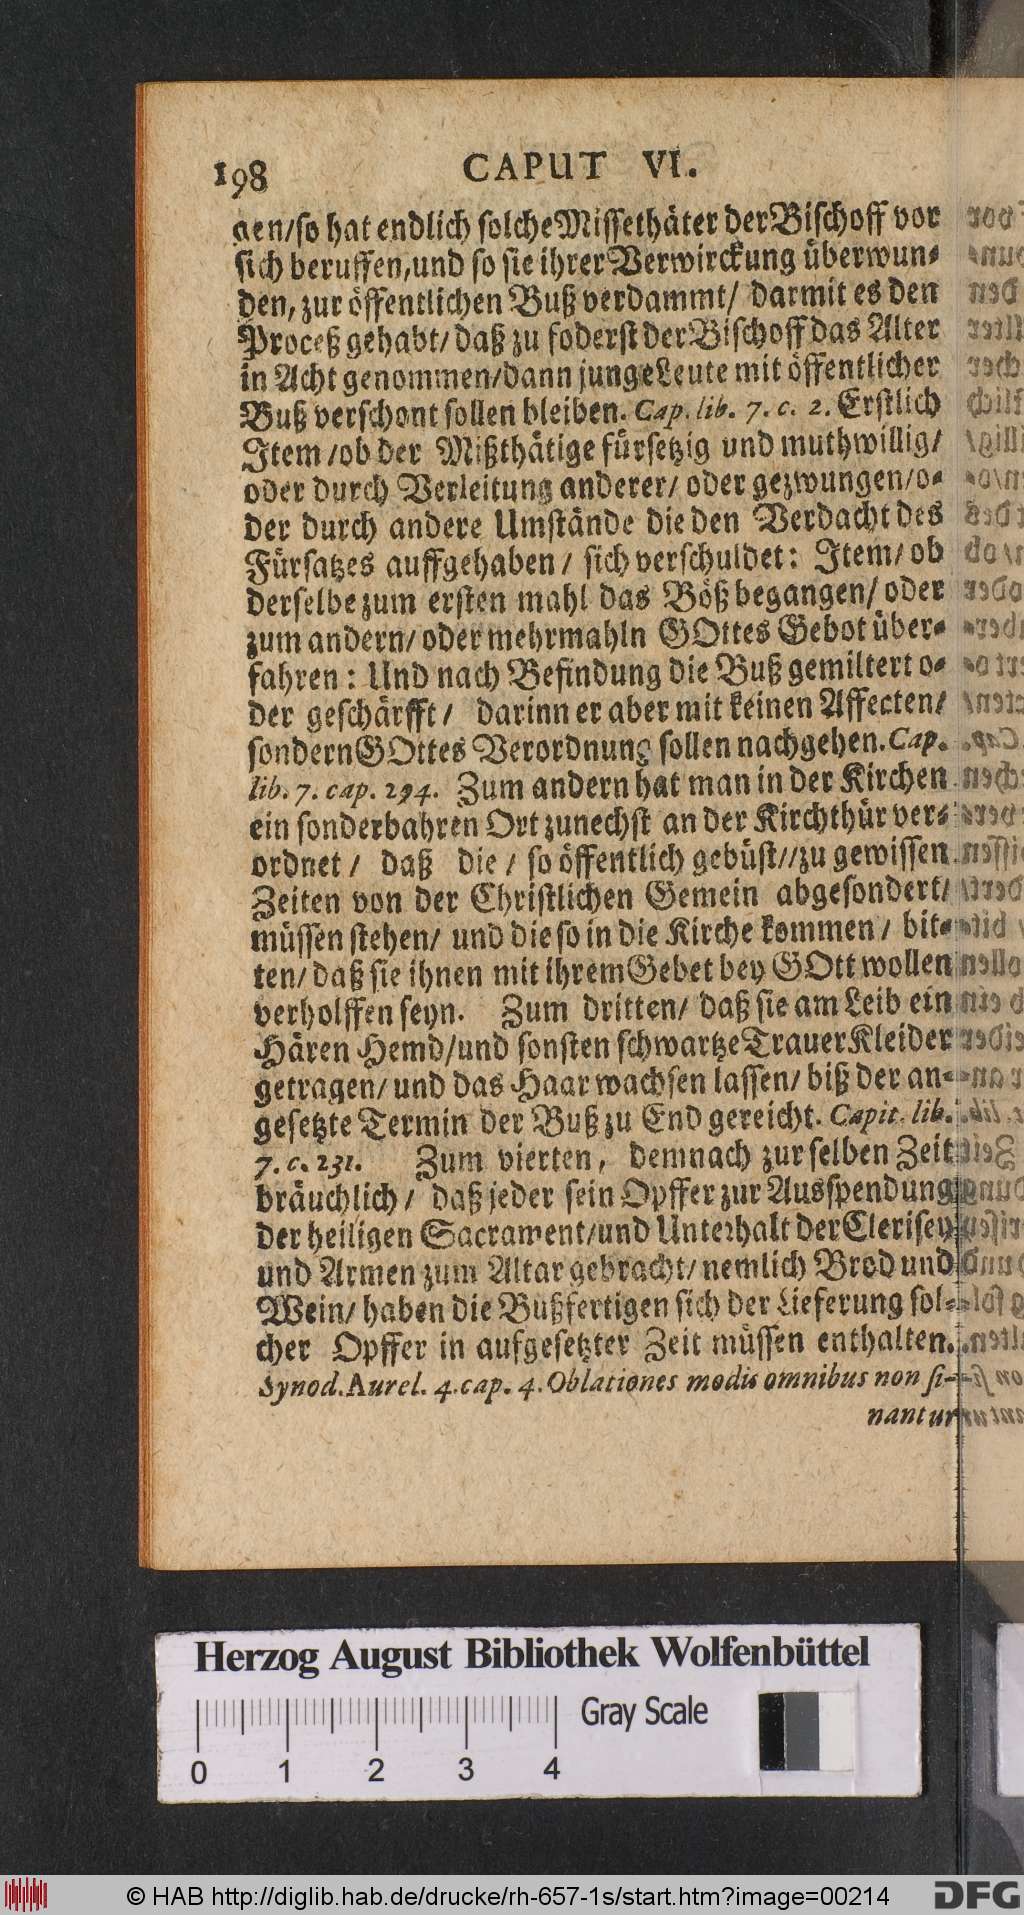 198 CAPUT VI.
gen/so hat endlich solche Missethäter der Bischoff vor
sich beruffen, und so sie ihrer Verwirckung überwun-
den, zur öffentlichen Buß verdammt/ darmit es den
Proceß gehabt/ daß zu foderst der Bischoff das Alter
in Acht genommen/dann junge Leute mit öffentlicher
Buß verschont sollen bleiben. Cap. lib. 7. c. 2. Erstlich
Item/ob der Mißthätige fürsetzig und muthwillig/
oder durch Verleitung anderer/ oder gezwungen/o-
der durch andere Umstände die den Verdacht des
Fürsatzes auffgehaben/ sich verschuldet: Item/ ob
derselbe zum ersten mahl das Böß begangen/ oder
zum andern/ oder mehrmahln GOttes Gebot über-
fahren: Und nach Befindung die Buß gemiltert o-
der geschärfft/ darinn er aber mit keinen Affecten/
sondern GOttes Verordnung sollen nachgehen. Cap.
lib. 7. cap. 294. Zum andern hat man in der Kirchen
ein sonderbahren Ort zunechst an der Kirchthür ver-
ordnet/ daß die/ so öffentlich gebüst//zu gewissen
Zeiten von der Christlichen Gemein abgesondert/
müssen stehen/ und die so in die Kirche kommen/ bit-
ten/ daß sie ihnen mit ihrem Gebet bey GOtt wollen
verholffen seyn. Zum dritten/ daß sie am Leib ein
Hären Hemd/und sonsten schwartze Trauer Kleider
getragen/ und das Haar wachsen lassen/ biß der an-
gesetzte Termin der Buß zu End gereicht. Capit. lib.
7. c. 231. Zum vierten, demnach zur selben Zeit
bräuchlich/ daß jeder sein Opffer zur Ausspendung
der heiligen Sacrament/und Unterhalt der Clerisey
und Armen zum Altar gebracht/ nemlich Brod und
Wein/ haben die Bußfertigen sich der Lieferung sol-
cher Opffer in aufgesetzter Zeit müssen enthalten.
Synod. Aurel. 4. cap. 4. Oblationes modis omnibus non si-
nantur
Herzog August Bibliothek Wolfenbüttel
Gray Scale
0 1 2 3 4
© HAB http://diglib.hab.de/drucke/rh-657-1s/start.htm?image=00214
DFG